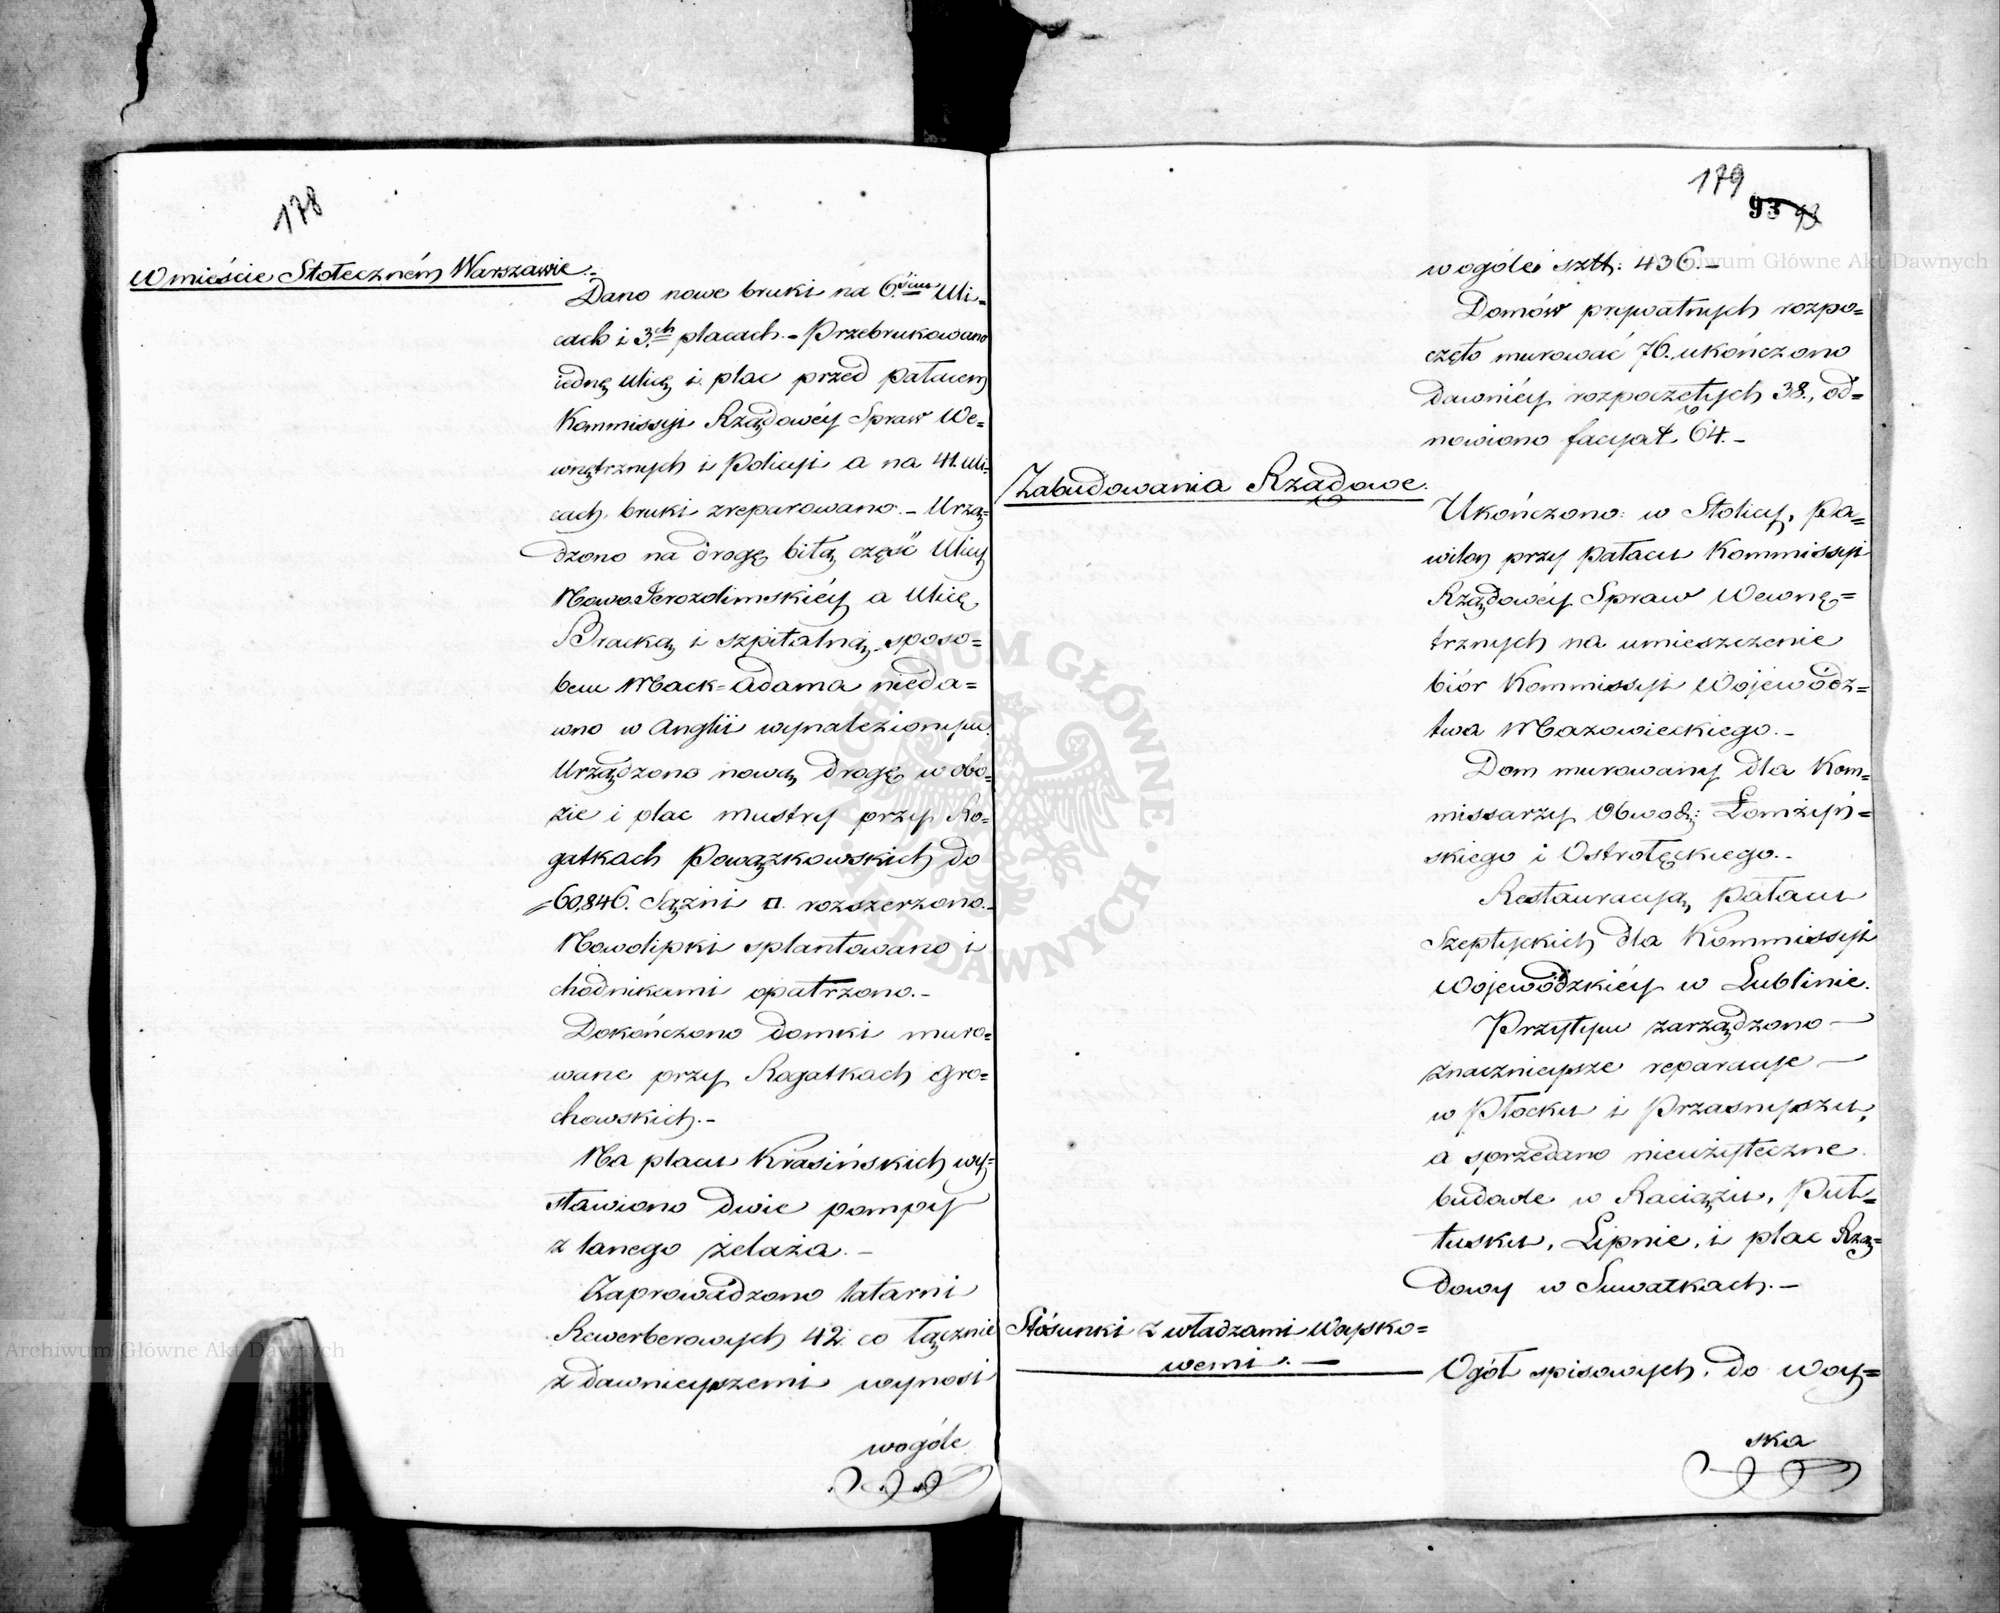 178
W mieście Stołeczném Warszawie.-
Dano nowe bruki na 6.ściu Uli=
cach i 3.ch placach.- Przebrukowano
iednę ulicę i plac przed pałacem
Kommissyi Rządowéy Spraw We=
wnętrznych i Policyi a na 41. uli=
cach bruki zreparowano.- Urzą=
dzono na drogę bitą część Ulicy
Nowo Jerozolimskiéy a Ulicę
Bracką i szpitalną sposo=
bem Mack=Adama nieda=
wno w Anglii wynalezionym.
Urządzono nową drogę w obo=
zie i plac mustry przy Ro=
gatkach Powązkowskich do
60,846. Sążni □. rozszerzono.-
Nowolipki splantowano i
chodnikami opatrzono.-
Dokończono domki muro=
wane przy Rogatkach Gro=
chowskich.-
Na placu Krasińskich wy=
stawiono dwie pompy
z lanego żelaża.-
Zaprowadzono latarni
Rewerberowych 42 co łącznie
z dawnieyszemi wynosi
wogóle
179
93 93
wogóle sztt: 436.-
Domów prywatnych rozpo=
częto murować 76. ukończono
dawniéy rozpoczętych 38., od=
nowiono facyat 64.-
Zabudowania Rządowe.
Ukończono: w Stolicy, Pa=
wilon przy pałacu Kommissyi
Rządowéy Spraw Wewnę=
trznych na umieszczenie
biór Kommissyi Wojewódz=
twa Mazowieckiego.-
Dom murowany dla Kom=
missarzy Obwod: Łomżyń=
skiego i Ostrołęckiego.-
Restauracyą pałacu
Szeptyckich dla Kommissyi
Wojewódzkiéy w Lublinie.
Przytym zarządzono -
znacznieysze reparacye -
w Płocku i Przasnyszu,
a sprzedano nieużyteczne
budowle w Raciążu, Puł=
tusku, Lipnie, i plac Rzą=
dowy w Suwałkach.-
Stósunki z władzami Woysko=
wemi.-
Ogół spisowych, do Woy=
ska
Archiwum Główne Akt Dawnych
ARCHIWUM GŁÓWNE AKT DAWNYCH
Archiwum Główne Akt Dawnych